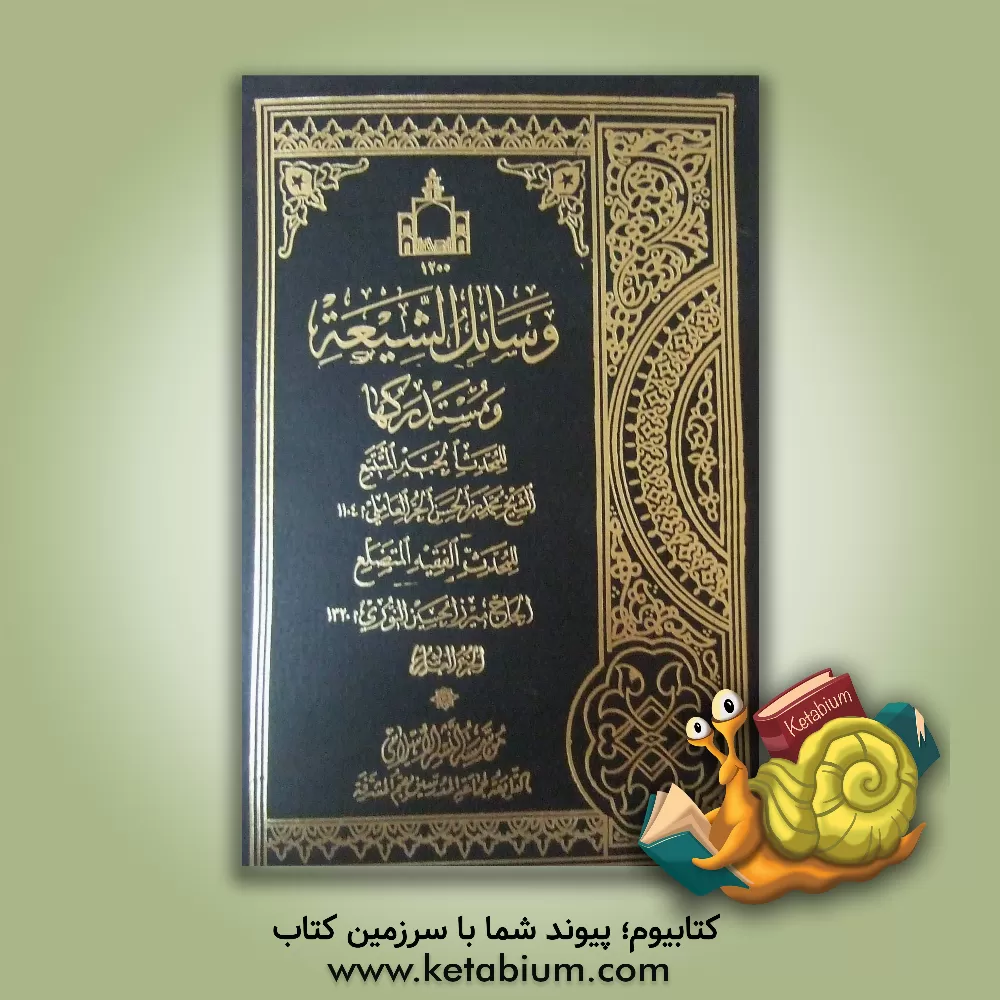 ١٢٠٠
وَسَائِلُ الشِّيعَةِ
وَمُسْتَدْرَكِهَا
للمحدث الخبير المتتبع
الشيخ محمد بن الحسن الحر العاملي م ١١٠٤
للمحدث الفقيه المتضلع
الحاج ميرزا حسين النوري م ١٣٢٠
مؤسسة النشر الإسلامي
التابعة لجماعة المدرسين بقم المشرفة
Ketabium
کتابیوم؛ پیوند شما با سرزمین کتاب
www.ketabium.com